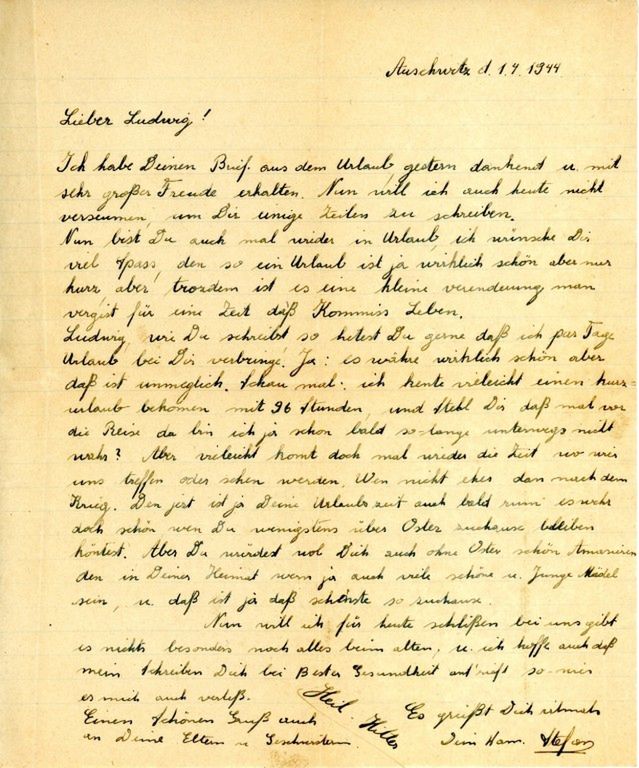 Auschwitz d. 1.4.1944
Lieber Ludwig!
Ich habe Deinen Brief. aus dem Urlaub gestern dankend u. mit
sehr großer Freude erhalten. Nun will ich auch heute nicht
verseumen, um Dir einige Zeilen zu schreiben.
Nun bist Du auch mal wieder in Urlaub, ich wünsche Dir
viel Spass, den so ein Urlaub ist ja wirklich schön aber nur
kurz aber trozdem ist es eine kleine verenderung man
vergist für eine Zeit daß Kommiss Leben.
Ludwig, wie Du schreibst so hetest Du gerne daß ich par Tage
Urlaub bei Dir verbringe. Ja: es währe wirklich schön aber
daß ist unmeglich. Schau mal: ich kente vieleicht einen kurz-
urlaub bekomen mit 96 Stunden, und Stehl Dir daß mal vor
die Reise da bin ich ja schon bald so-lange unterwegs nicht
wahr? Aber vieleicht komt doch mal wieder die Zeit wo wir
uns treffen oder sehen werden. Wen nicht eher dan nach dem
Krieg. Den jezt ist ja Deine Urlaubszeit auch bald rum es wehr
doch schön wen Du wenigstens über Oster zuhause bleiben
köntest. Aber Du würdest wol Dich auch ohne Oster schön Amuesieren
den in Deiner Heimat wern ja auch viele schöne u. Junge Mädel
sein, u. daß ist ja daß schenste so zuhause.
Nun will ich für heute schlißen bei uns gibt
es nichts besonders noch alles beim alten, u. ich hoffe auch daß
mein Schreiben Dich bei Bester Gesundheit antrift so-wie
es mich auch verleß.
Heil Hitler
Einen Schönen Gruß auch
an Deine Eltern u Geschwistern.
Es grießt Dich
Dein Kam. Stefan